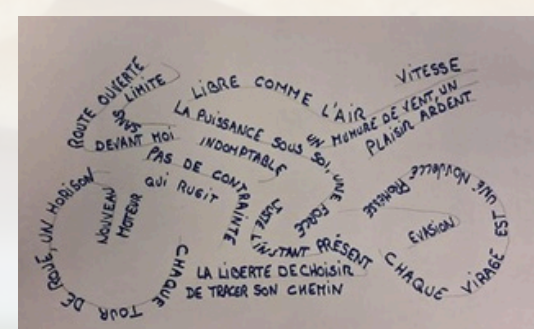 ROUTE OUVERTE
SANS LIMITE
DEVANT MOI
LIBRE COMME L'AIR
VITESSE
UN MUMURE DE VENT, UN
PLAISIR ARDENT
LA PUISSANCE SOUS SOI, UNE FORCE
INDOMPTABLE
PAS DE CONTRAINTE
QUI RUGIT
JUSTE L'INSTANT PRÉSENT
NOUVEAU
MOTEUR
CHAQUE TOUR DE ROUE, UN HORISON
LA LIBERTÉ DE CHOISIR
DE TRACER SON CHEMIN
CHAQUE VIRAGE EST UNE NOUVELLE
PROMESSE
EVASION